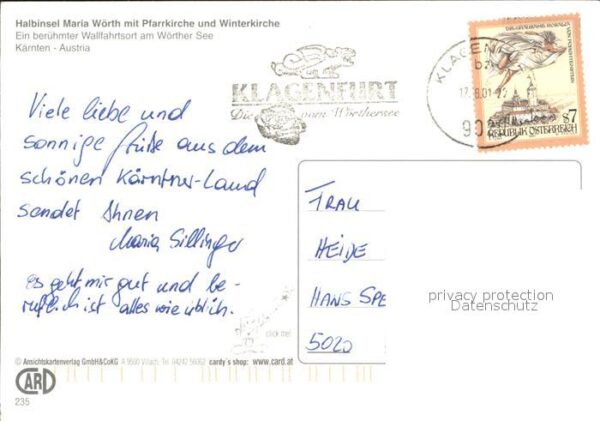 Halbinsel Maria Wörth mit Pfarrkirche und Winterkirche
Ein berühmter Wallfahrtsort am Wörther See
Kärnten - Austria
KLAGENFURT
Die
am Wörthersee
KLAGEN
17.8.01
90
s7
REPUBLIK ÖSTERREICH
Viele liebe und
sonnige Grüße aus dem
schönen Kärntner-Land
sendet Ihnen
Maria Sillinger
es geht mir gut und be-
ruflich ist alles wie üblich.
FRAU
HEIDE
HANS SPE
5020
privacy protection
Datenschutz
click me!
© Ansichtskartenverlag GmbH&CoKG A 9500 Villach, Tel. 04242 56062 candy's shop: www.card.at
CARD
235